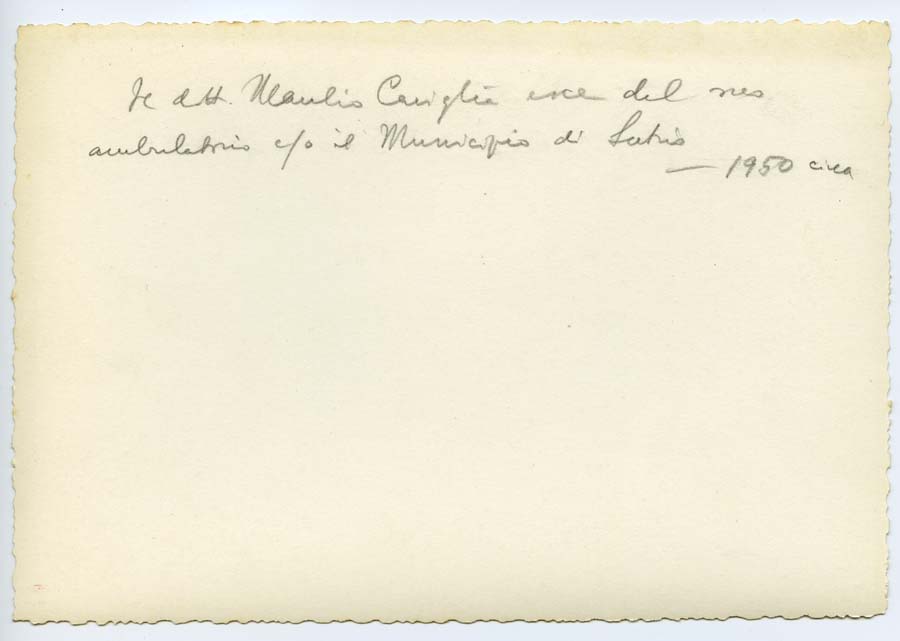 Il dott. Manlio Caniglia esce dal suo
ambulatorio c/o il Municipio di Sutrio
— 1950 circa